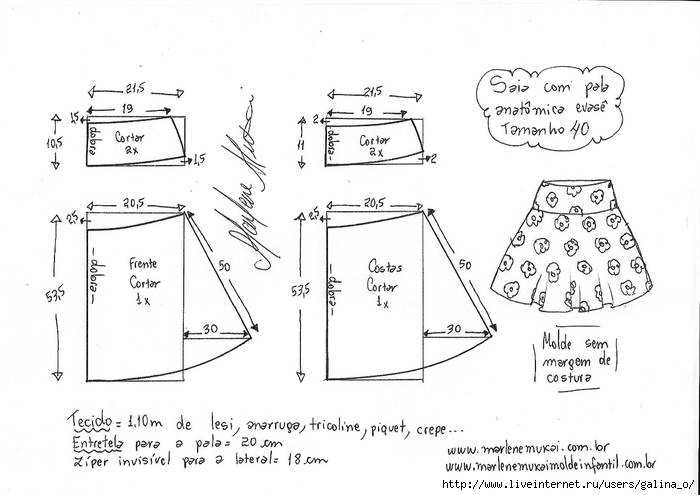 Saia com pala
anatômica evasê
Tamanho 40
21,5
19
1,5
10,5
dobra
Cortar
2x
1,5
21,5
19
2
11
dobra
Cortar
2x
2
Marlene Mukai
20,5
2,5
53,5
dobra
Frente
Cortar
1x
50
30
20,5
2,5
53,5
dobra
Costas
Cortar
1x
50
30
Molde sem
margem de
costura
Tecido = 1,10m de lesi, anarruga, tricoline, piquet, crepe...
Entretela para a pala = 20 cm
Zíper invisível para a lateral = 18 cm
www.marlenemukai.com.br
www.marlenemukaimoldeinfantil.com.br
http://www.liveinternet.ru/users/galina_o/